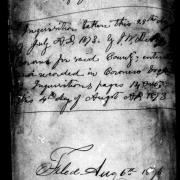 Inquisition taken this 29th day
of July A.D. 1878. by J. W.
Coroner for said County; entered
and recorded in Coroners Dock
Inquisitions pages
This 4th day of Augt A.D. 1878
Filed Aug 6th 1878